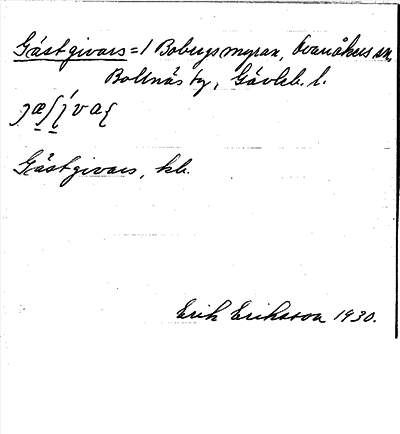 Gästgivars = / Bobergsmyran, Ovanåkers sn,
Bollnäs ty, Gävleb. l.
Gästgivars, kb.
Erik Eriksson 1930.